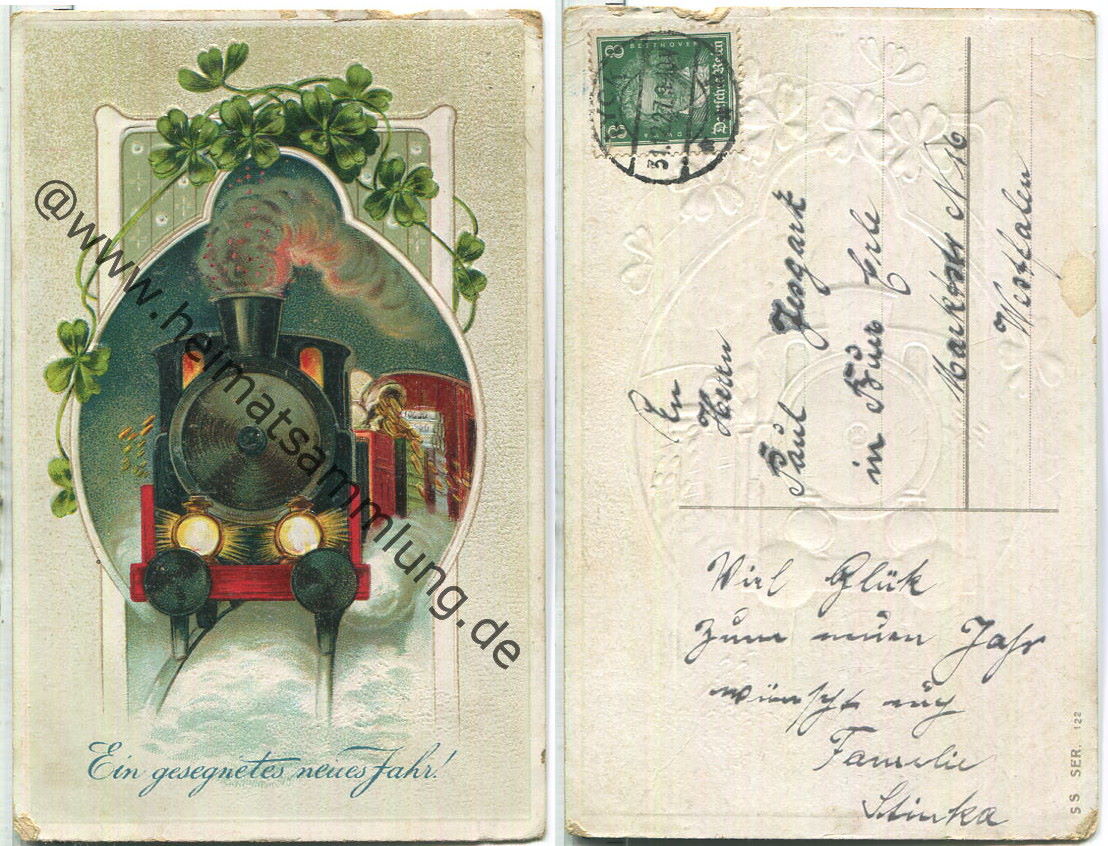 @www.heimatsammlung.de
Ein gesegnetes neues Jahr!
8 BEETHOVEN 8
Deutsches Reich
31. 27. 9-10
An
Herrn
Paul Jesgark
in Buer Erle
Markestr N 16
Westfalen
Viel Glük
zum neuen Jahr
wünscht euch
Familie
Stinka
SS SER. 122